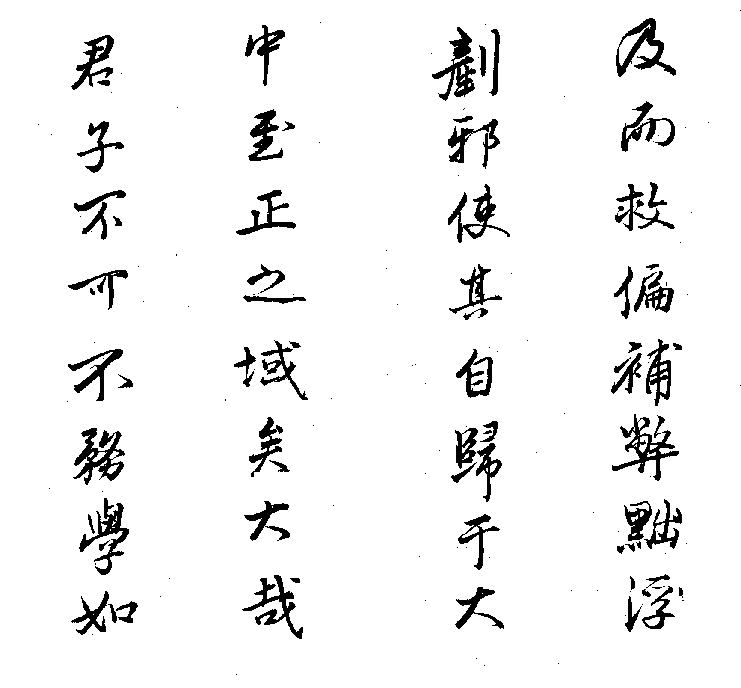 及而救偏補弊黜浮
剷邪使其自歸于大
中至正之域矣大哉
君子不可不務學如